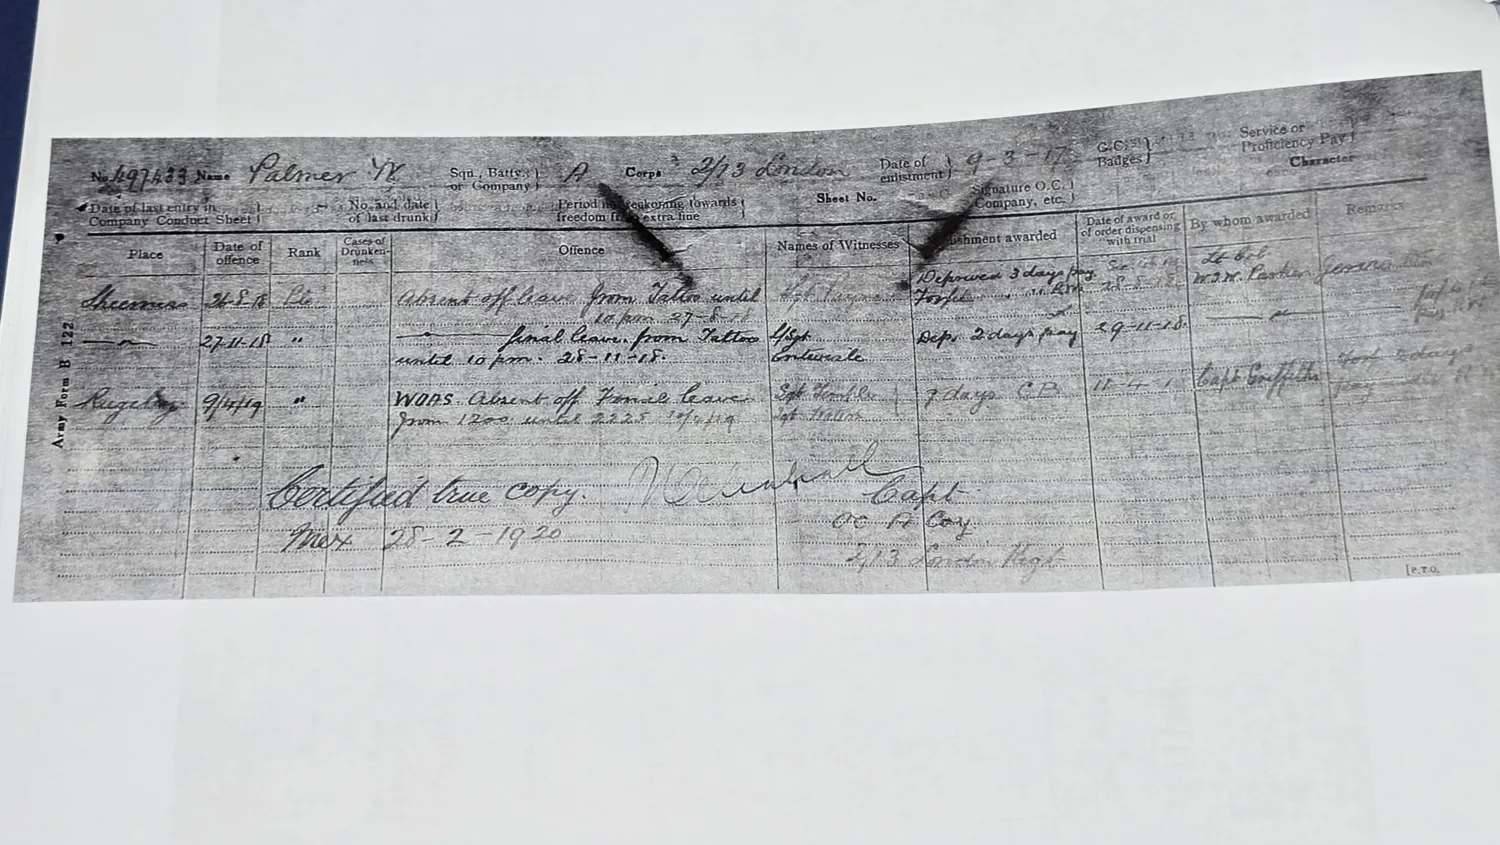 No. 497433 Name Palmer W Sqn., Batty., or Company A Corps 2/13 London Date of enlistment 9-3-17 G.C. Badges Service or Proficiency Pay
Date of last entry in Company Conduct Sheet No. and date of last drunk Period not reckoning towards freedom from extra fine Sheet No. Signature O.C. Company, etc. Character
Place Date of offence Rank Cases of Drunkenness Offence Names of Witnesses Punishment awarded Date of award or of order dispensing with trial By whom awarded Remarks
Sheerness 26-8-18 Pte Absent off leave from Tattoo until Deprived 3 days pay Lt Col
10 pm 27-8-18 Forfeit " " R.W. W.J.W. Parker
" 27-11-18 " " final leave from Tattoo L/Sgt Dep. 2 days pay 29-11-18 "
until 10 pm. 28-11-18. Entwistle
Rugeley 9/4/19 " WOAS Absent off Final leave Sgt 7 days CB Capt Griffiths
from 1200 until 2225 Sgt
Certified true copy. Capt
Mex 28-2-1920 OC A Coy
2/13 London Regt
Army Form B 122
[P.T.O.